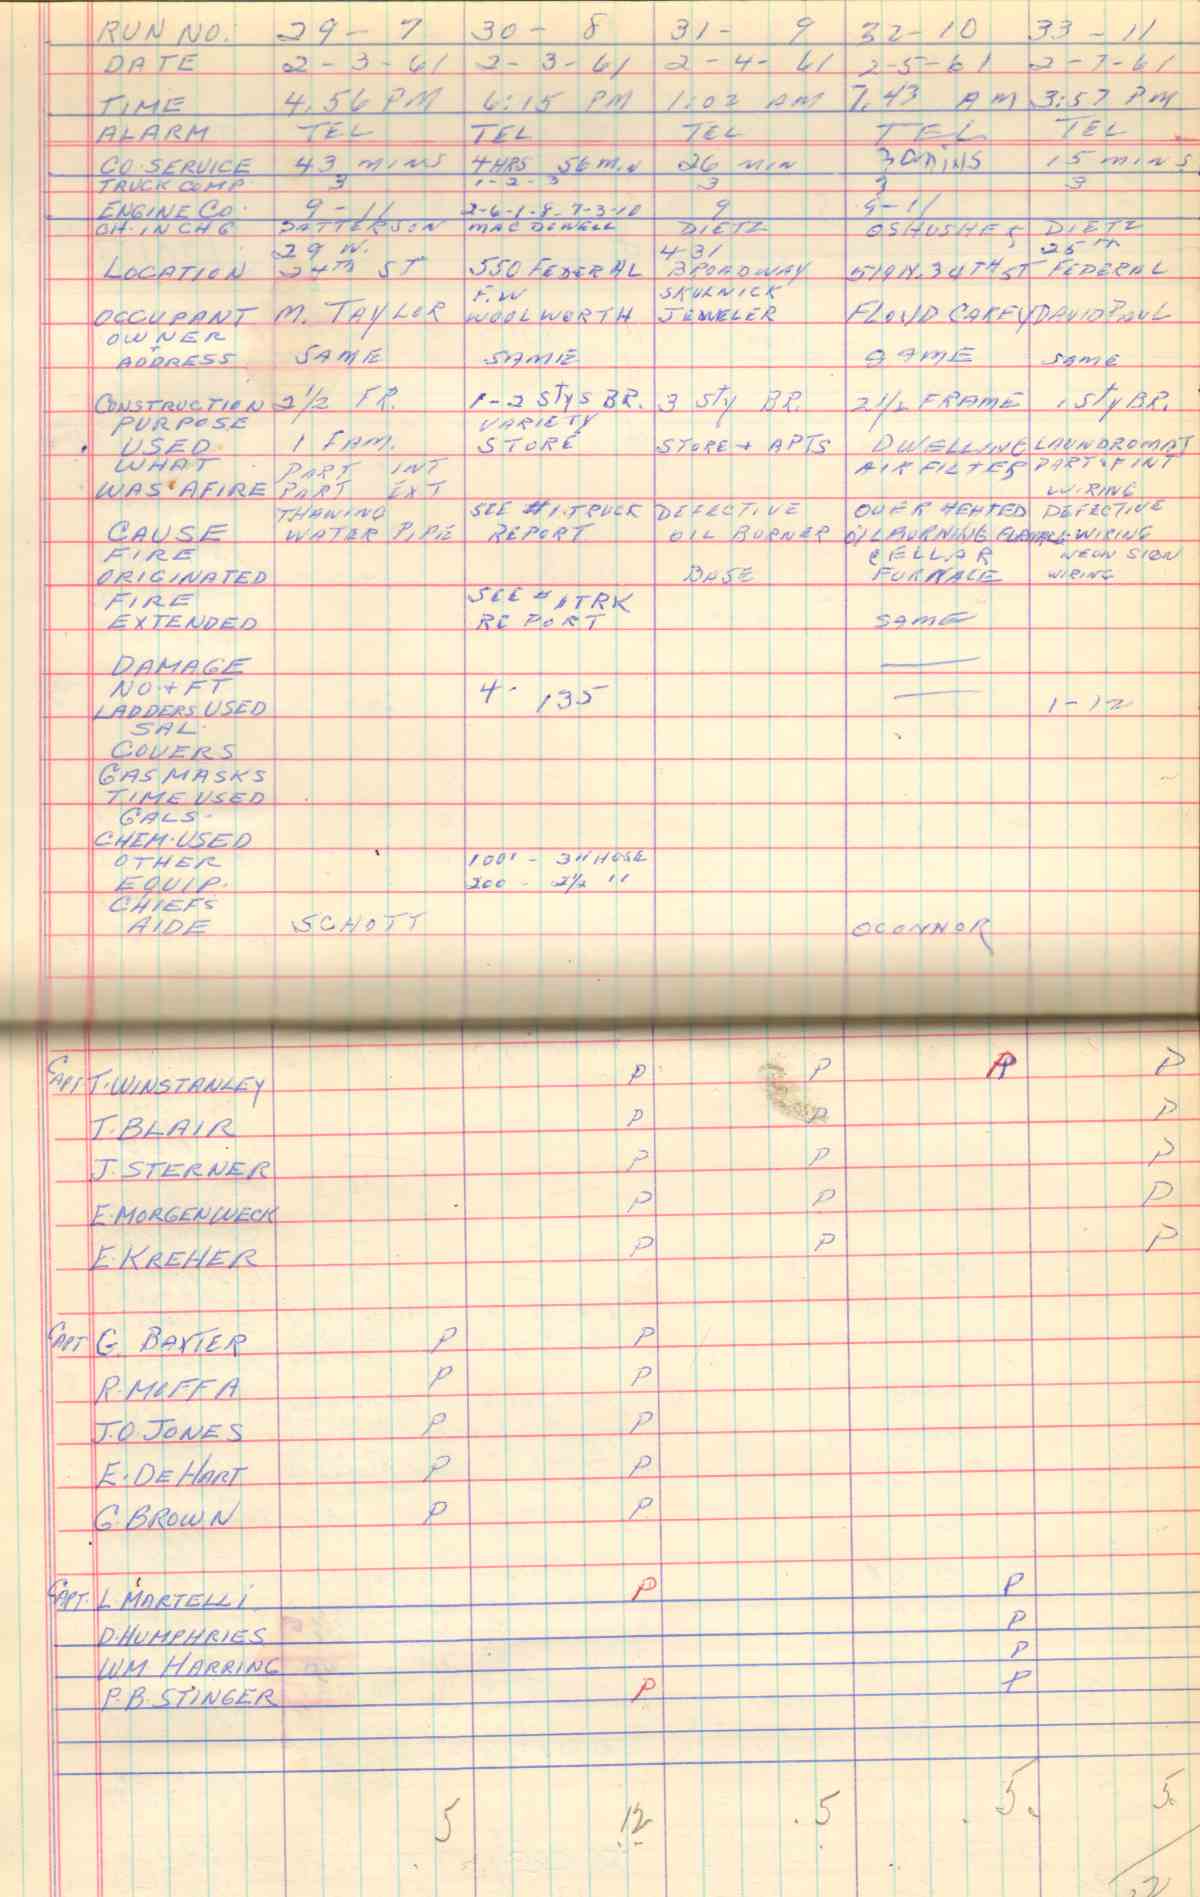 RUN NO. 29 - 7 30 - 8 31 - 9 32 - 10 33 - 11
DATE 2-3-61 2-3-61 2-4-61 2-5-61 2-7-61
TIME 4.56 PM 6:15 PM 1:02 AM 7.43 AM 3:57 PM
ALARM TEL TEL TEL TEL TEL
CO. SERVICE 43 MINS 4 HRS 56 MIN 26 MIN 30 MINS 15 MINS
TRUCK COMP. 3 1-2-3 3 3 3
ENGINE CO. 9-11 2-6-1-8-7-3-10 9 9-11
CH. IN CHG PATTERSON MACDOWELL DIETZ DIETZ
29 W. 431 25TH
LOCATION 24TH ST 550 FEDERAL BROADWAY 519 N. 34TH ST FEDERAL
F.W SKOLNICK
OCCUPANT M. TAYLOR WOOLWORTH JEWELER FLOYD CAREY DAVID PAUL
OWNER
+
ADDRESS SAME SAME SAME SAME
CONSTRUCTION 2 1/2 FR. 1-2 STYS BR. 3 STY BR. 2 1/2 FRAME 1 STY BR.
PURPOSE VARIETY
USED 1 FAM. STORE STORE + APTS DWELLING LAUNDROMAT
WHAT PART INT AIR FILTER PART OF INT
WAS AFIRE PART EXT WIRING
THAWING SEE #1 TRUCK DEFECTIVE OVER HEATED DEFECTIVE
CAUSE WATER PIPE REPORT OIL BURNER OIL BURNING WIRING
FIRE CELLAR NEON SIGN
ORIGINATED BASE FURNACE WIRING
FIRE SEE #1 TRK
EXTENDED REPORT SAME
DAMAGE —
NO. + FT 4 - 135 —
LADDERS USED 1-12
SAL.
COVERS
GAS MASKS
TIME USED
GALS.
CHEM. USED
OTHER 100' - 3" HOSE
EQUIP. 200 - 2 1/2 "
CHIEFS
AIDE SCHOTT OCONNOR
CAPT T. WINSTANLEY P P P P
T. BLAIR P P P
J. STERNER P P P
E. MORGENWECK P P P
E. KREHER P P P
CAPT G. BAXTER P P
R. MOFFA P P
J.O. JONES P P
E. DEHART P P
G. BROWN P P
CAPT. L. MARTELLI P P
D. HUMPHRIES P
WM HARRING P
P.B. STINGER P P
5 12 5 5. 5.